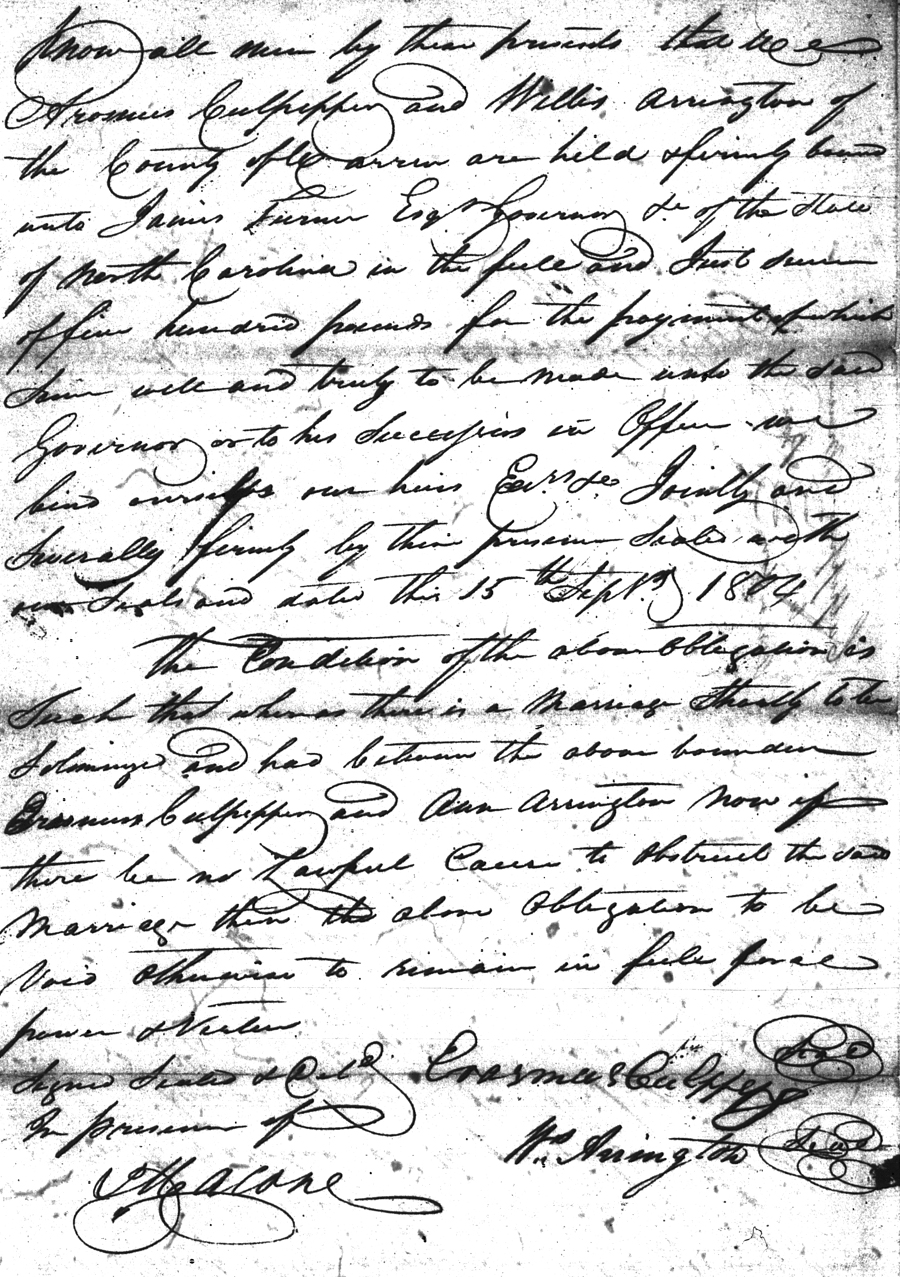 Know all men by these presents that we
Arosmus Culpepper and Willis Arrington of
the County of Warren are held & firmly bound
unto James Turner Esqr Governor &c of the State
of North Carolina in the full and Just sum
of five hundred pounds for the payment of which
Sum well and truly to be made unto the said
Governor or to his Successors in Office we
bind ourselfs our heirs Exrs &c Jointly and
Severally firmly by these presence Sealed with
our Seals and dated this 15th Septr 1804
The Condition of the above Obligation is
Such that whereas there is a Marriage Shortly to be
Solimnized and had between the above bounden
Erasmus Culpepper and Ann Arrington Now if
there be no Lawful Cause to Obstruct the said
Marriage then the above Obligation to be
Void Otherwise to remain in full force
power & Virtue
Signed Sealed & Deld
In presence of
Erasmus Culpepper Seal
Ws. Arrington Seal
J Malone